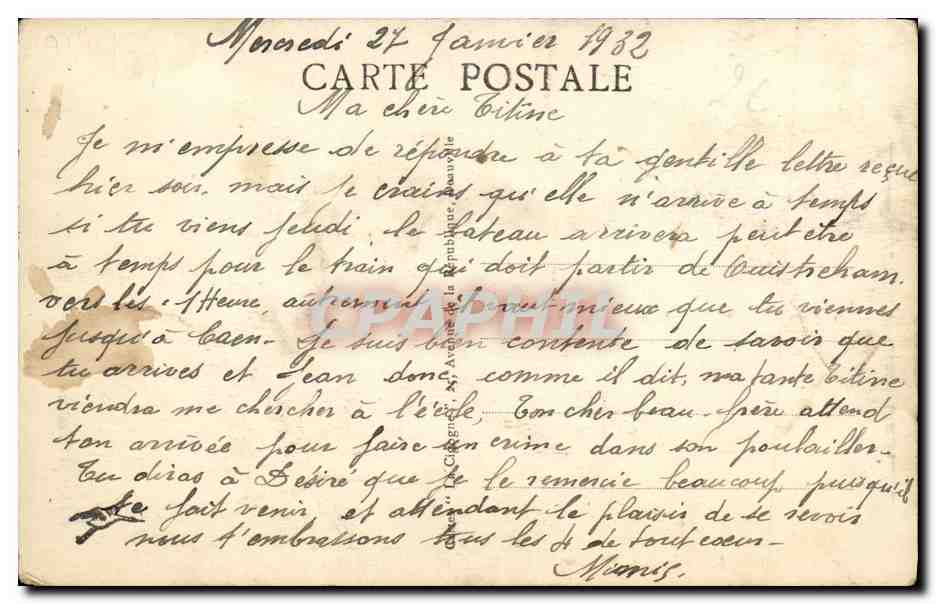 Mercredi 27 Janvier 1932
CARTE POSTALE
Ma chère Titine
Je m'empresse de répondre à ta gentille lettre reçue
hier soir, mais je crains qu'elle n'arrive à temps
si tu viens Jeudi, le bateau arrivera peut être
à temps pour le train qui doit partir de Ouistreham
vers les 1 Heure, autrement il vaut mieux que tu viennes
jusqu'à Caen - Je suis bien contente de savoir que
tu arrives et Jean donc, comme il dit, ma tante Titine
viendra me chercher à l'école, Ton cher beau-frère attend
ton arrivée pour faire un crime dans son poulailler -
Tu diras à Désiré que je le remercie beaucoup, puisqu'il
te fait venir, et attendant le plaisir de se revoir
nous t'embrassons tous les 4 de tout cœur -
Mimis.
Avenue de la République, Deauville
CPAPHIL